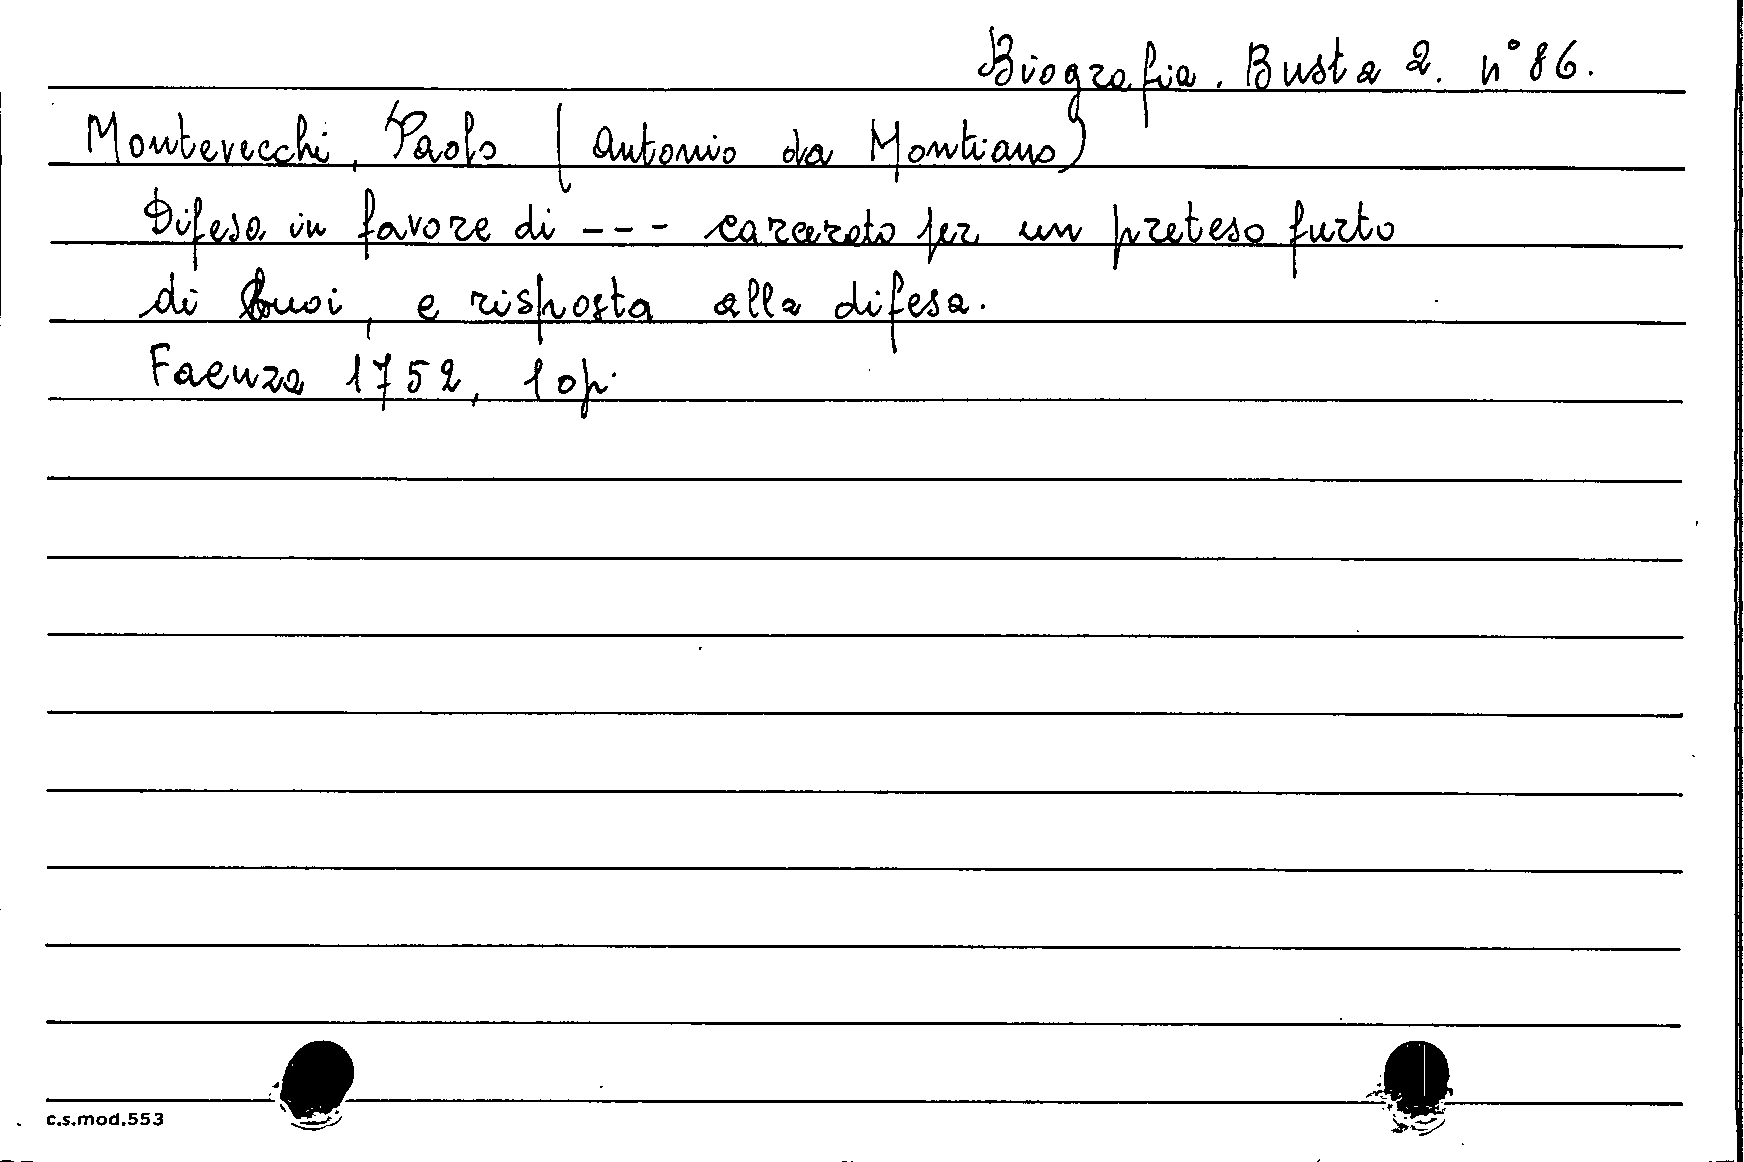 Biografia. Busta 2. n° 86.
Montevecchi, Paolo (Antonio da Montiano)
Difesa in favore di --- carcerato per un preteso furto
di buoi, e risposta alla difesa.
Faenza 1752, 1 op.
c.s.mod.553